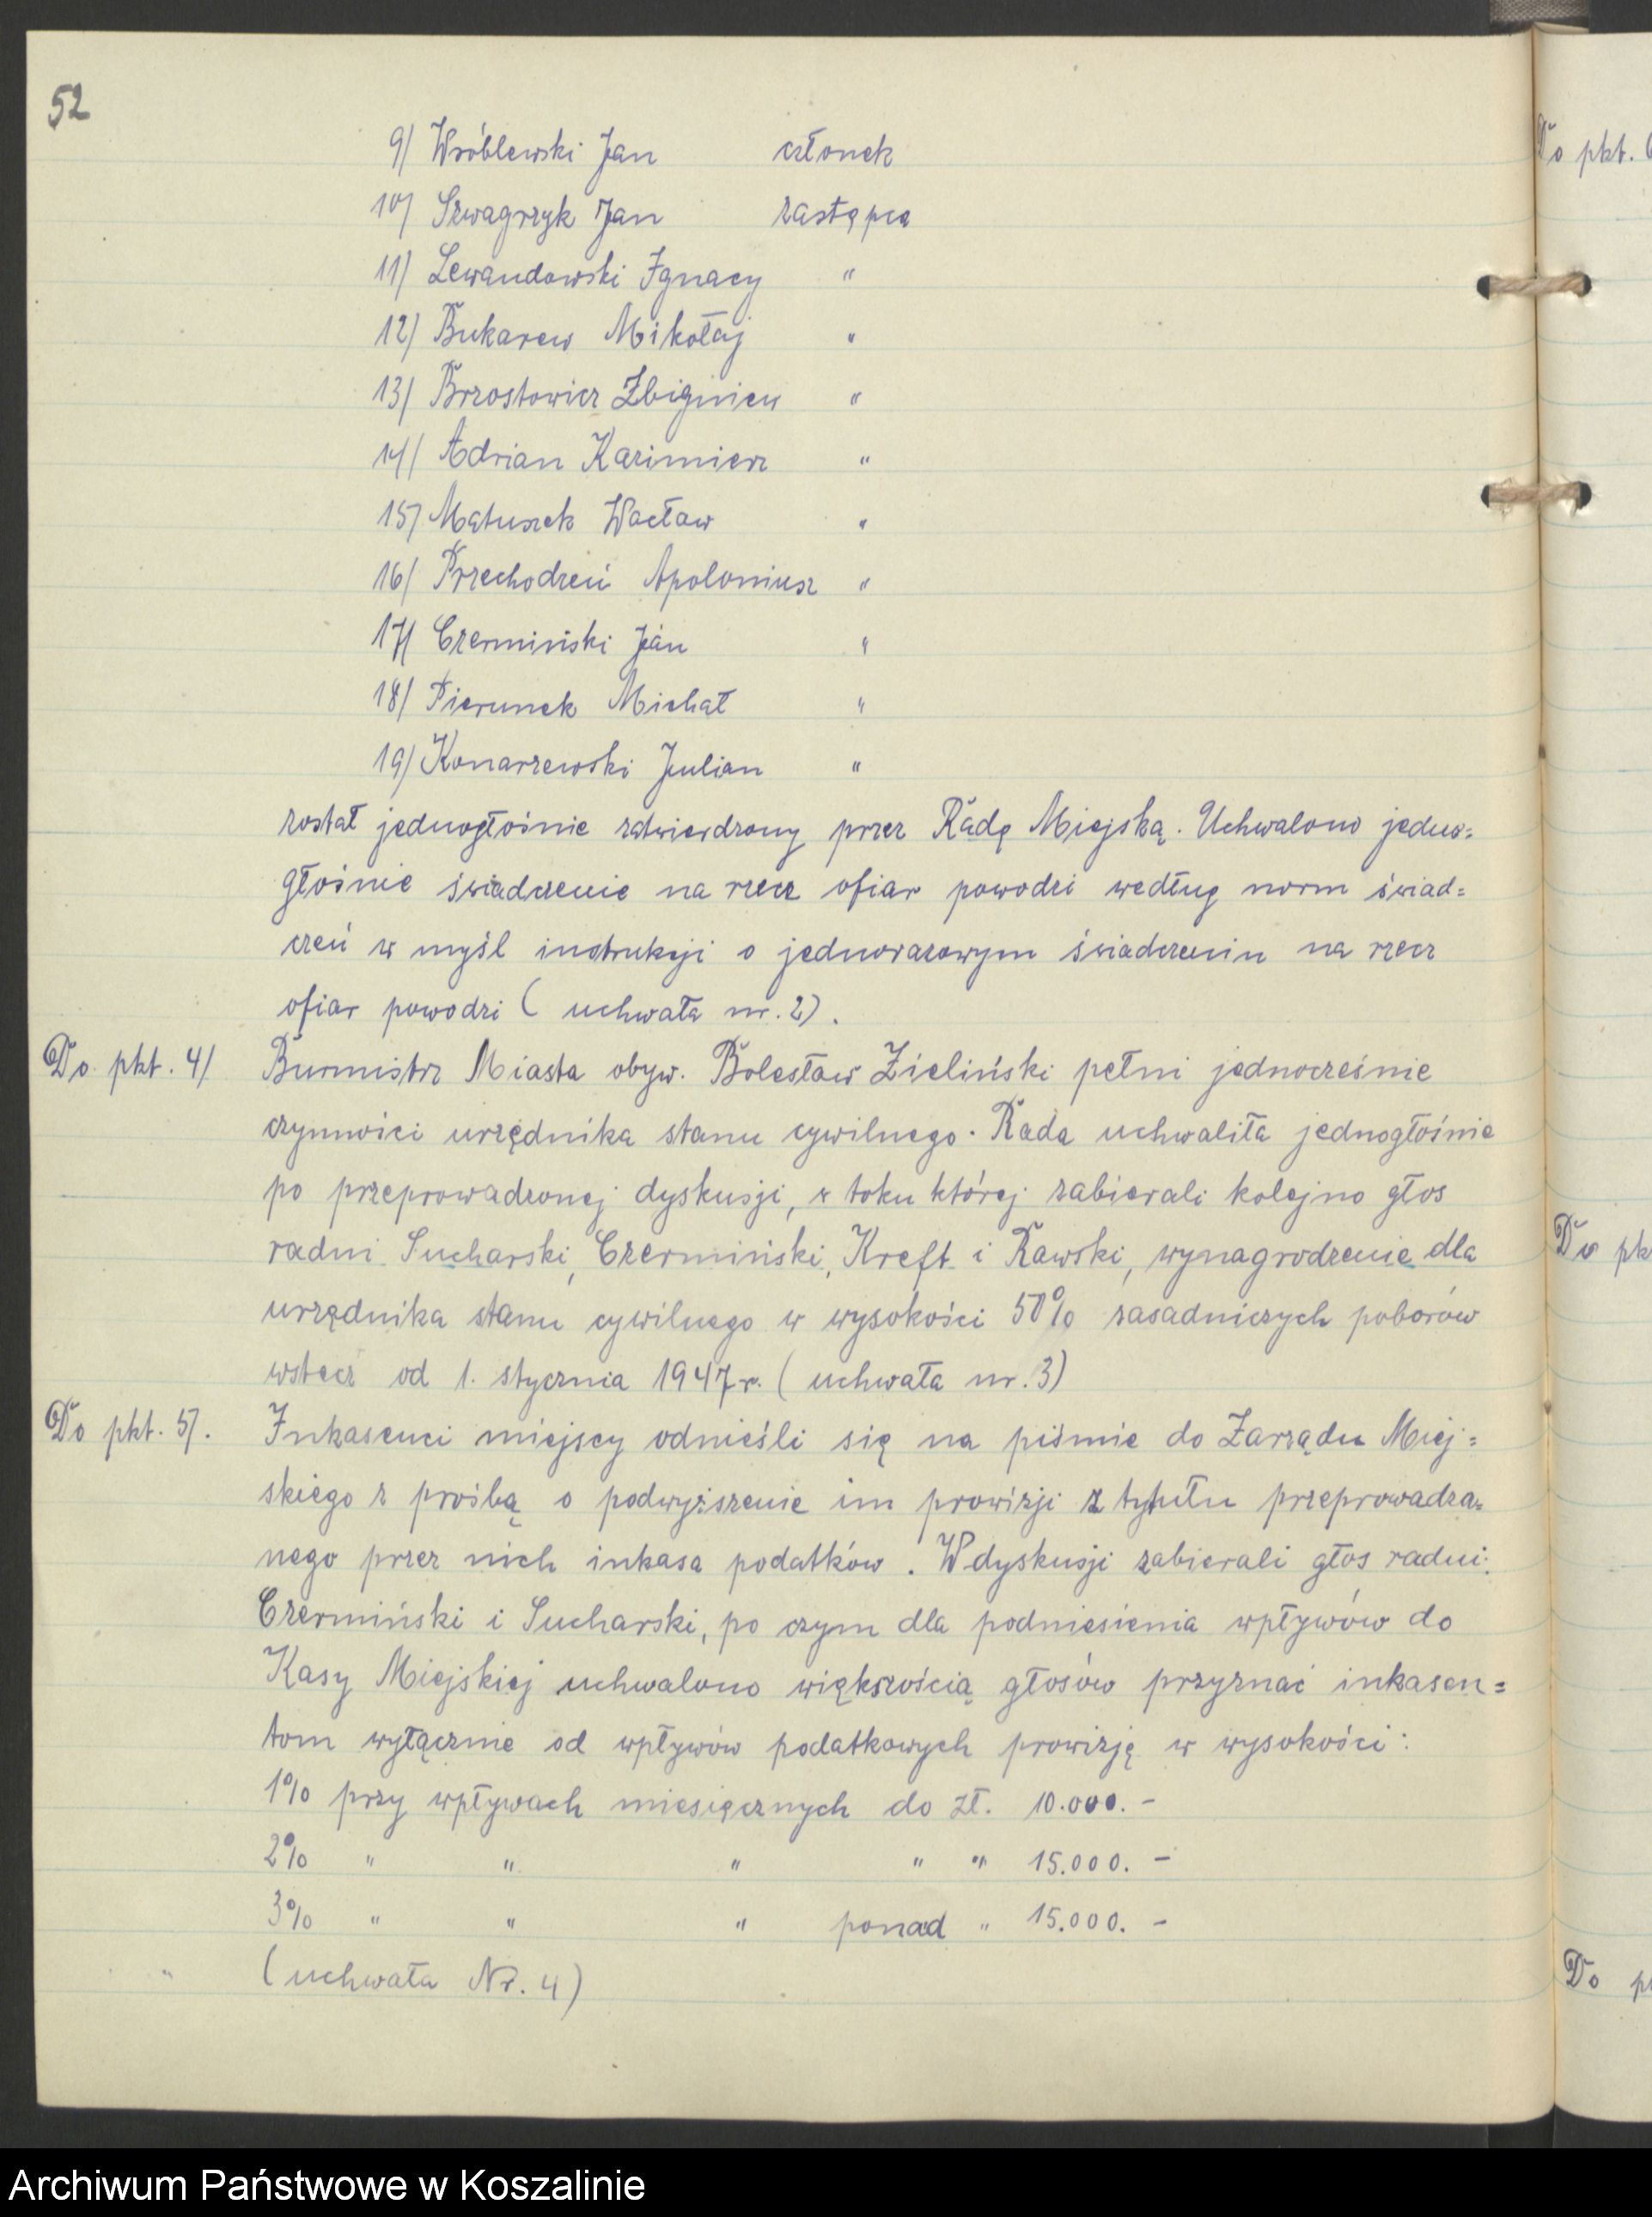 52
9/ Wróblewski Jan członek
10/ Szwagrzyk Jan zastępca
11/ Lewandowski Ignacy "
12/ Bukarew Mikołaj "
13/ Brzostowicz Zbigniew "
14/ Adrian Kazimierz "
15/ Matuszek Wacław "
16/ Przechodzeń Apoloniusz "
17/ Czermiński Jan "
18/ Pierunek Michał "
19/ Konarzewski Julian "
został jednogłośnie zatwierdzony przez Radę Miejską. Uchwalono jedno=
głośnie świadczenie na rzecz ofiar powodzi według norm świad=
czeń w myśl instrukcji o jednorazowym świadczeniu na rzecz
ofiar powodzi ( uchwała nr. 2).
Do pkt. 4/ Burmistrz Miasta obyw. Bolesław Zieliński pełni jednocześnie
czynności urzędnika stanu cywilnego. Rada uchwaliła jednogłośnie
po przeprowadzonej dyskusji, w toku której zabierali kolejno głos
radni Sucharski, Czermiński, Kreft i Rawski, wynagrodzenie dla
urzędnika stanu cywilnego w wysokości 50% zasadniczych poborów
wstecz od 1. stycznia 1947 r. ( uchwała nr. 3)
Do pkt. 5/. Inkasenci miejscy odnieśli się na piśmie do Zarządu Miej=
skiego z prośbą o podwyższenie im prowizji z tytułu przeprowadza=
nego przez nich inkasa podatków. W dyskusji zabierali głos radni:
Czermiński i Sucharski, po czym dla podniesienia wpływów do
Kasy Miejskiej uchwalono większością głosów przyznać inkasen=
tom wyłącznie od wpływów podatkowych prowizję w wysokości:
1% przy wpływach miesięcznych do zł. 10.000.-
2% " " " " " 15.000. -
3% " " " ponad " 15.000. -
(uchwała Nr. 4)
Do pkt. 6
Do pk
Do p
Archiwum Państwowe w Koszalinie